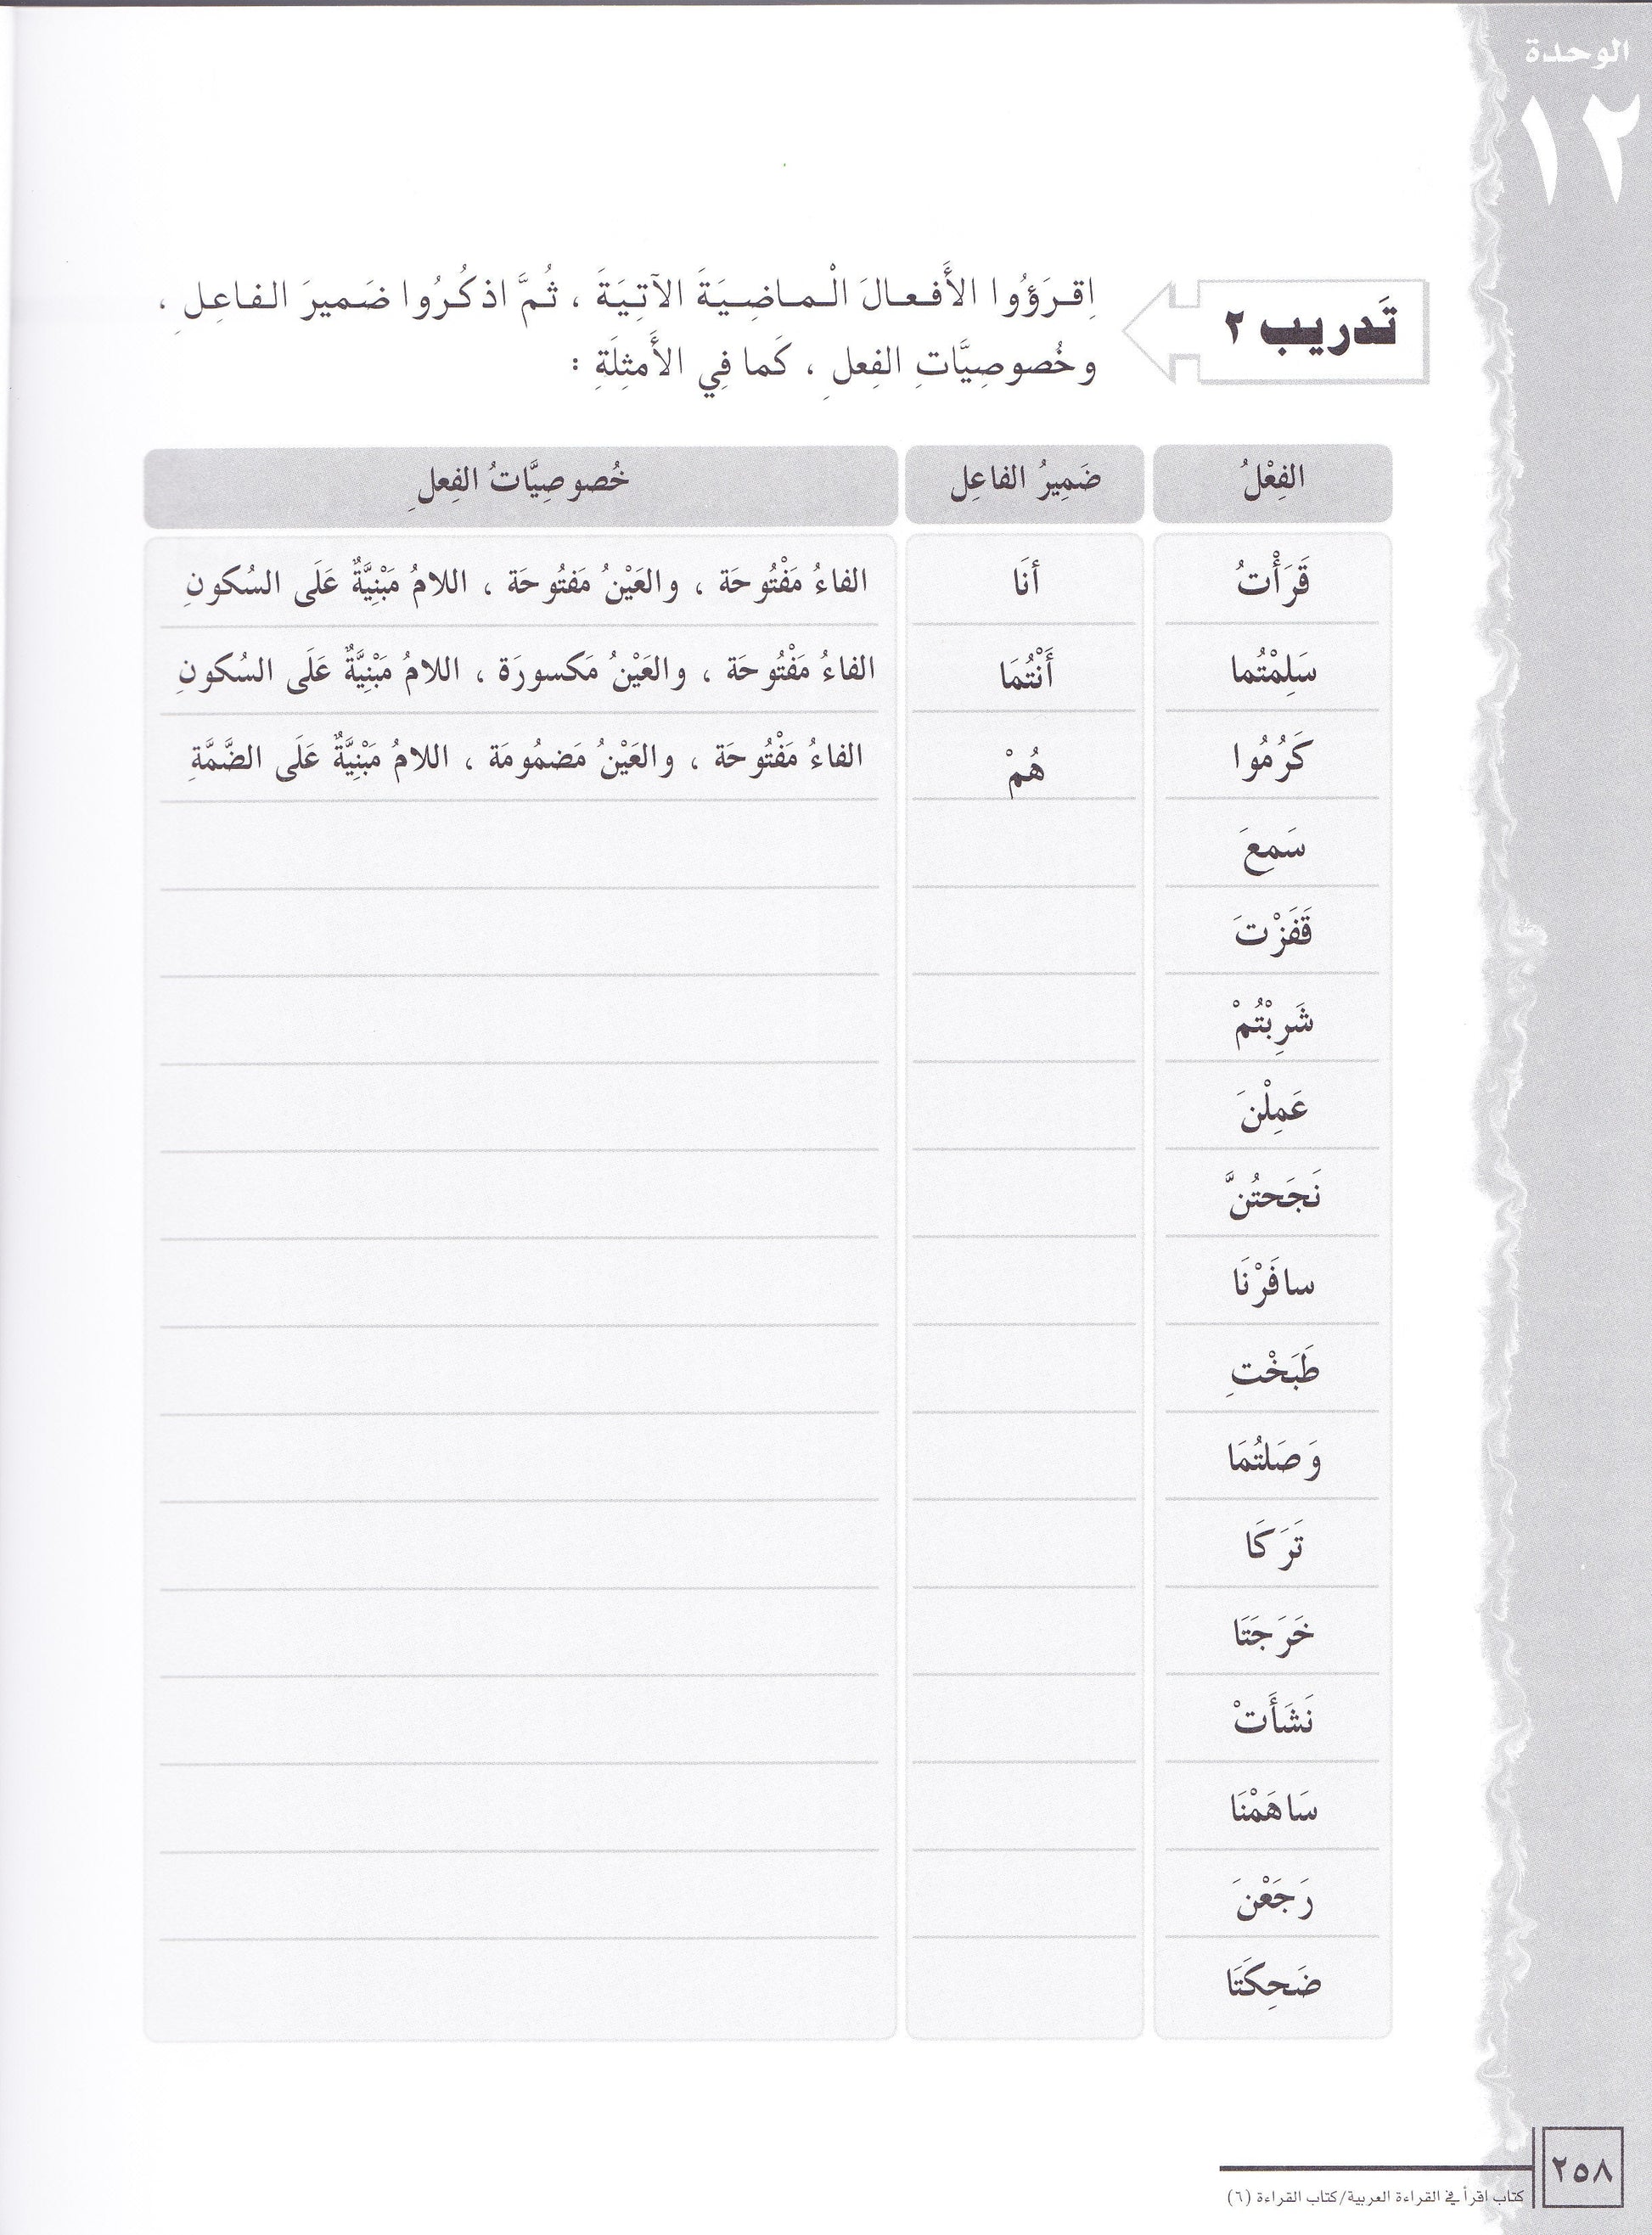 الوحدة
١٢
تَدريب ٢
اِقـرَؤُوا الأَفـعـالَ الْـمـاضِـيَـةَ الآتِيَةَ ، ثُمَّ اذكُرُوا ضَميرَ الفاعِلِ ،
وخُصوصِيَّاتِ الفِعلِ ، كَما فِي الأَمثِلَةِ :
الفِعْلُ ضَمِيرُ الفاعِلِ خُصوصِيَّاتُ الفِعلِ
قَرَأْتُ أنَا الفاءُ مَفْتُوحَة ، والعَيْنُ مَفتُوحَة ، اللامُ مَبْنِيَّةٌ عَلَى السُكونِ
سَلِمْتُما أَنْتُمَا الفاءُ مَفْتُوحَة ، والعَيْنُ مَكسورَة ، اللامُ مَبْنِيَّةٌ عَلَى السُكونِ
كَرُمُوا هُمْ الفاءُ مَفْتُوحَة ، والعَيْنُ مَضمُومَة ، اللامُ مَبْنِيَّةٌ عَلَى الضَّمَّةِ
سَمِعَ
قَفَزْتَ
شَرِبْتُمْ
عَمِلْنَ
نَجَحتُنَّ
سافَرْنَا
طَبَخْتِ
وَصَلتُمَا
تَرَكَا
خَرَجَتَا
نَشَأَتْ
سَاهَمْنَا
رَجَعْنَ
ضَحِكَتَا
٢٥٨
كتاب اقرأ في القراءة العربية/كتاب القراءة (٦)